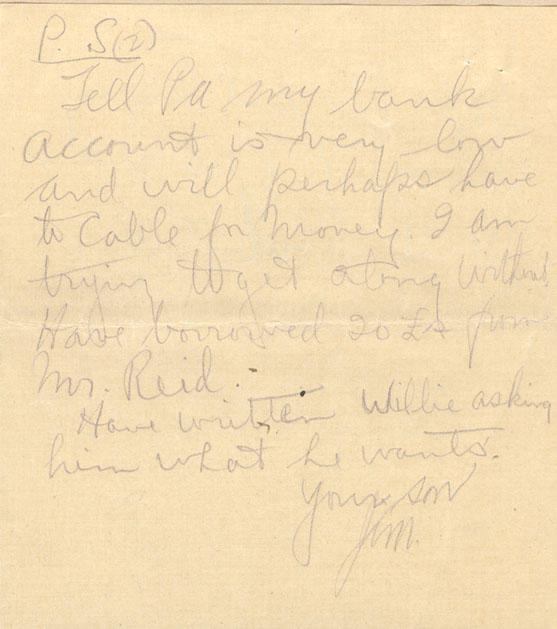 P. S(2)
Tell Pa my bank
account is very low
and will perhaps have
to Cable for Money. I am
trying to get along without
Have borrowed 20 £s from
Mr. Reid.
Have written Willie asking
him what he wants.
Your son
Jim.